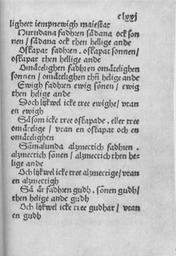 clxvj
lighett iempnewigh maiestat
Hurudana fadhren sådana ock son
nen / sådana ock then helige ande
Oskapat fadhren. oskapat sonnen/
oskapat then helige ande
Omätelighen fadhren omätelighen
sonnen / omätelighen then helige ande
Ewigh fadhren ewig sonen / ewig
then helige ande
Doch lijkwel icke tree ewighe / vtan
en ewig
Så som icke tree oskapade. eller tree
omätelige / vtan en oskapat och en
omätelig
Sammalunda alzmectich fadhren.
alzmectich sonen / alzmectich then he-
lige ande
Och lijkwel icke tree alzmectige / vtan
en alzmectigh
Så är fadhren gudh. sonen gudh/
then helige ande gudh
Och lijkwel icke tree gudhar / vtan
en gudh